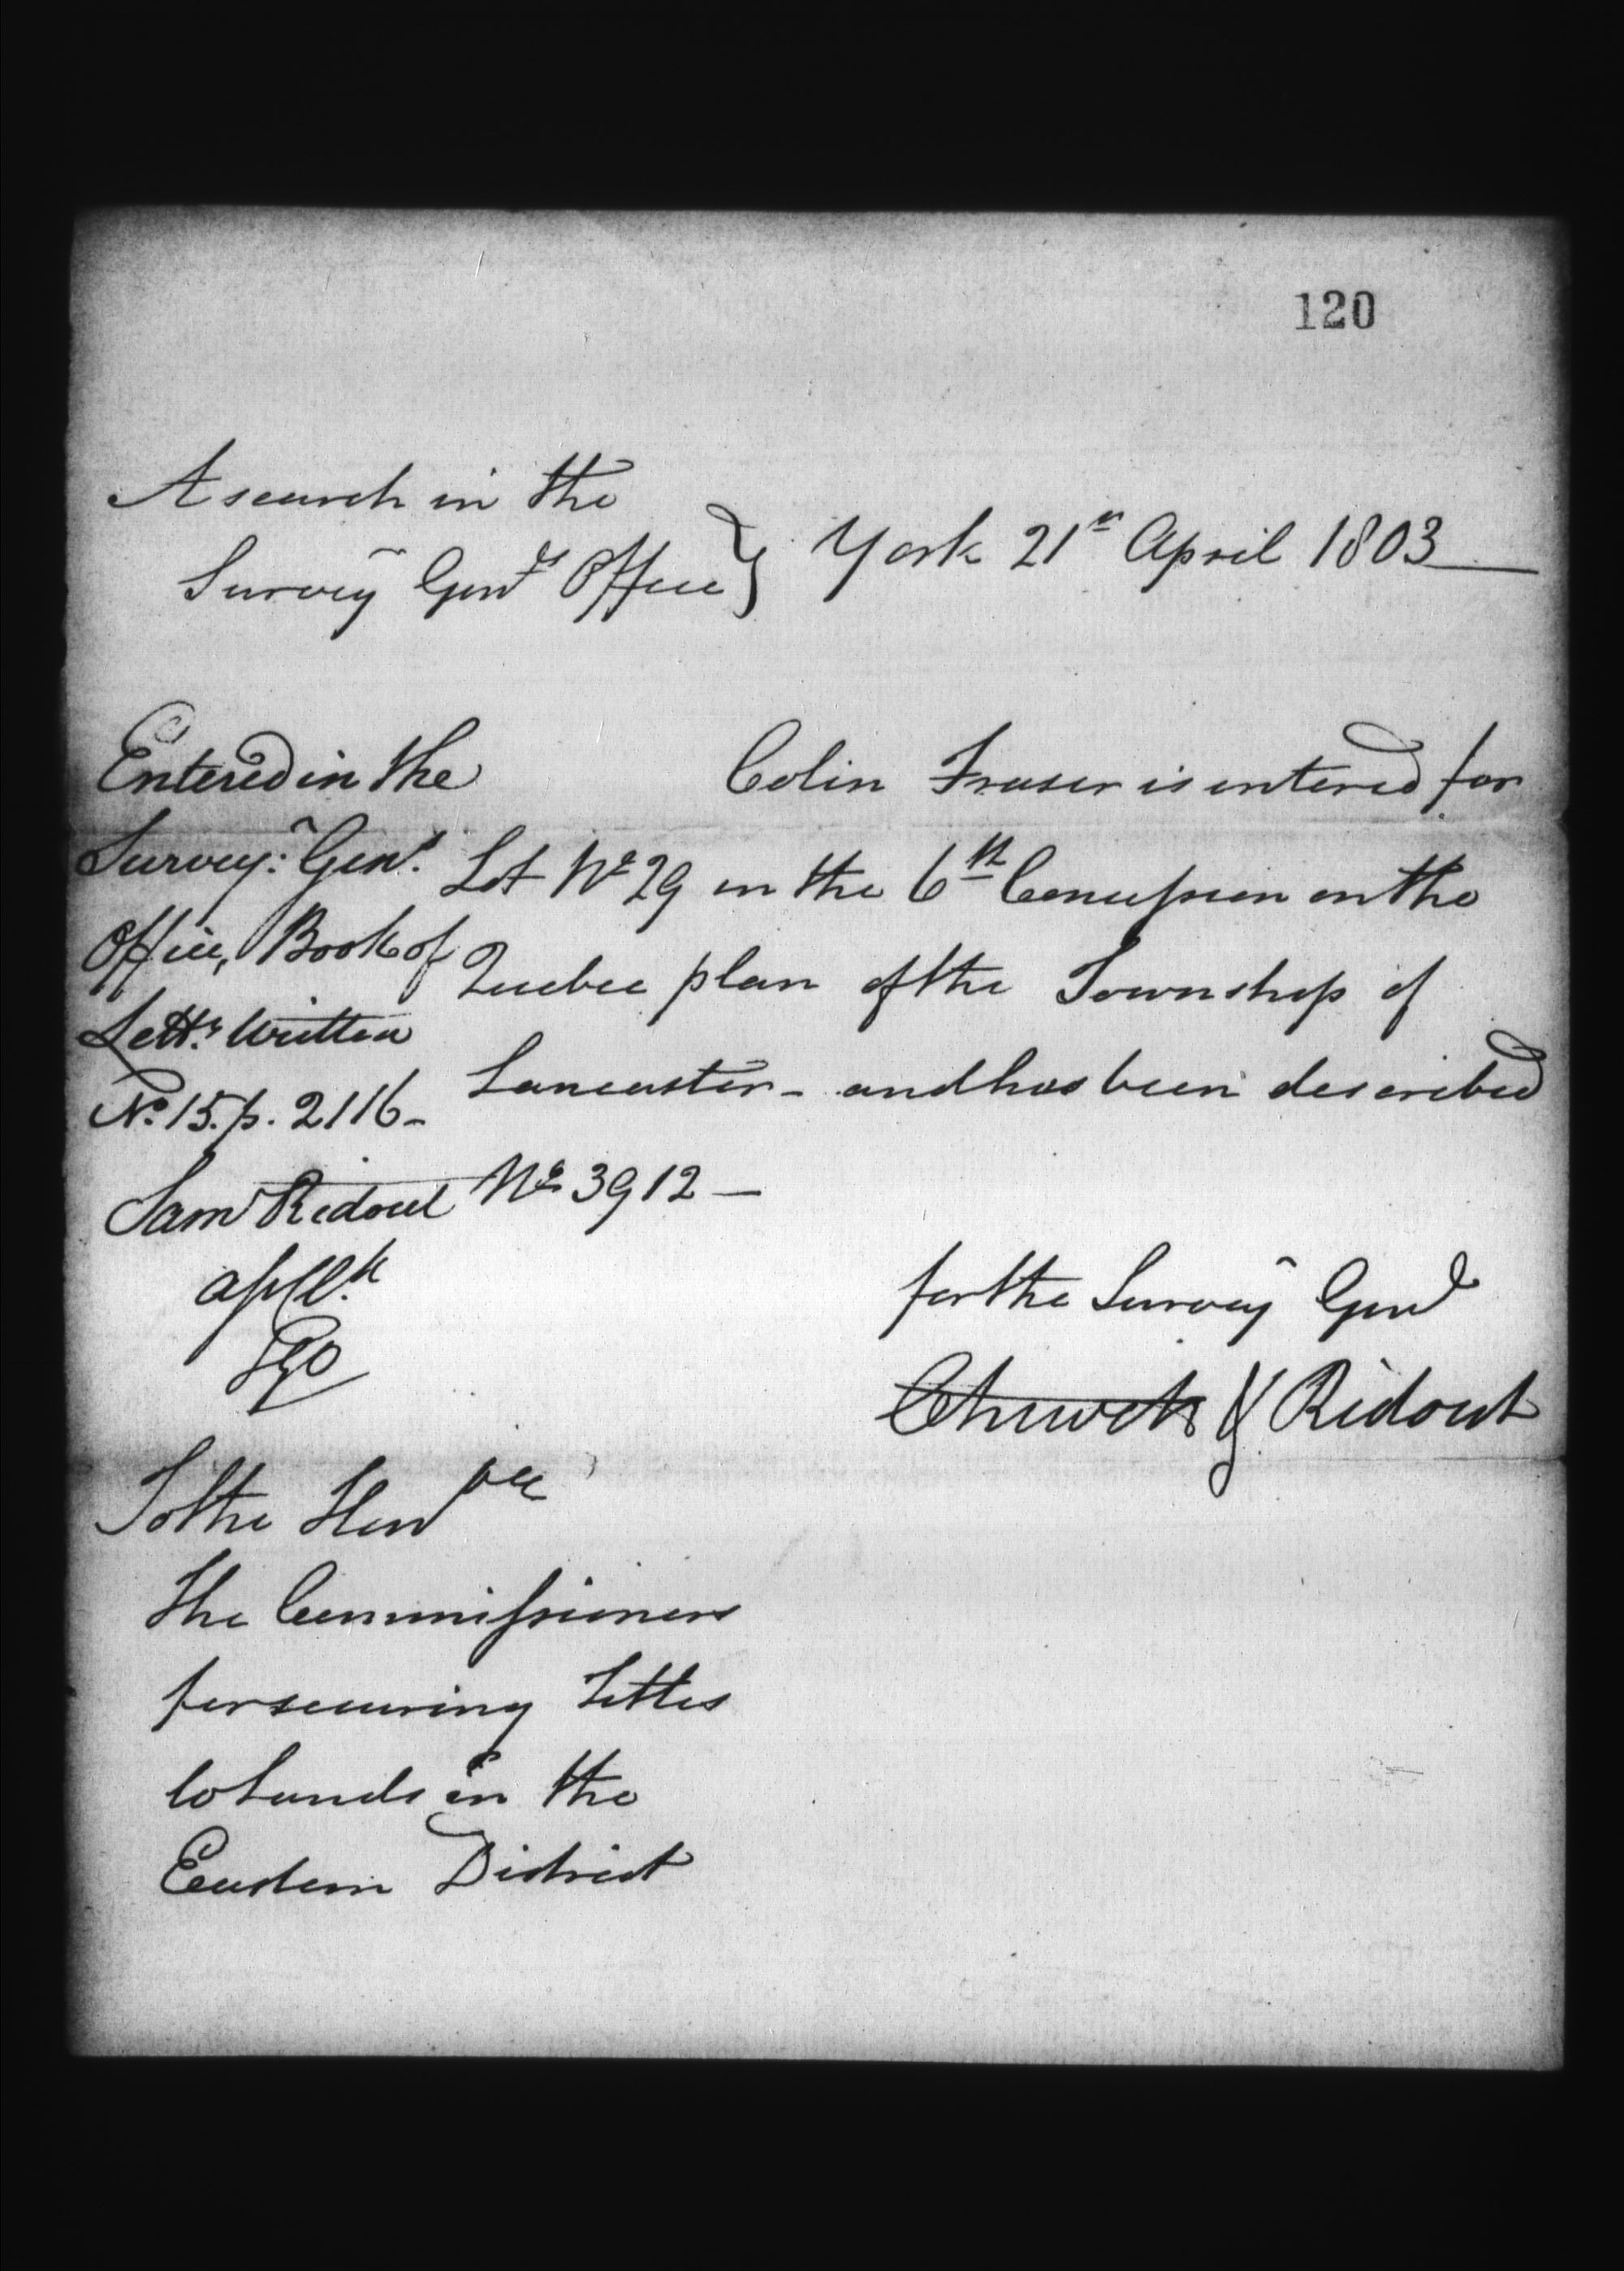 120
A search in the
Survey Genls Office } York 21st April 1803
Colin Fraser is entered for
Lot No 29 in the 6th Concession on the
Quebec plan of the Township of
Lancaster - and has been described
No 3912 -
for the Survey Genl
Chewett & Ridout
Entered in the
Survey: Genls
Office, Book of
Lettrs Written
No. 15. p. 2116 -
Saml Ridout
To the Honble
the Commissioners
for securing Titles
to Lands in the
Eastern District